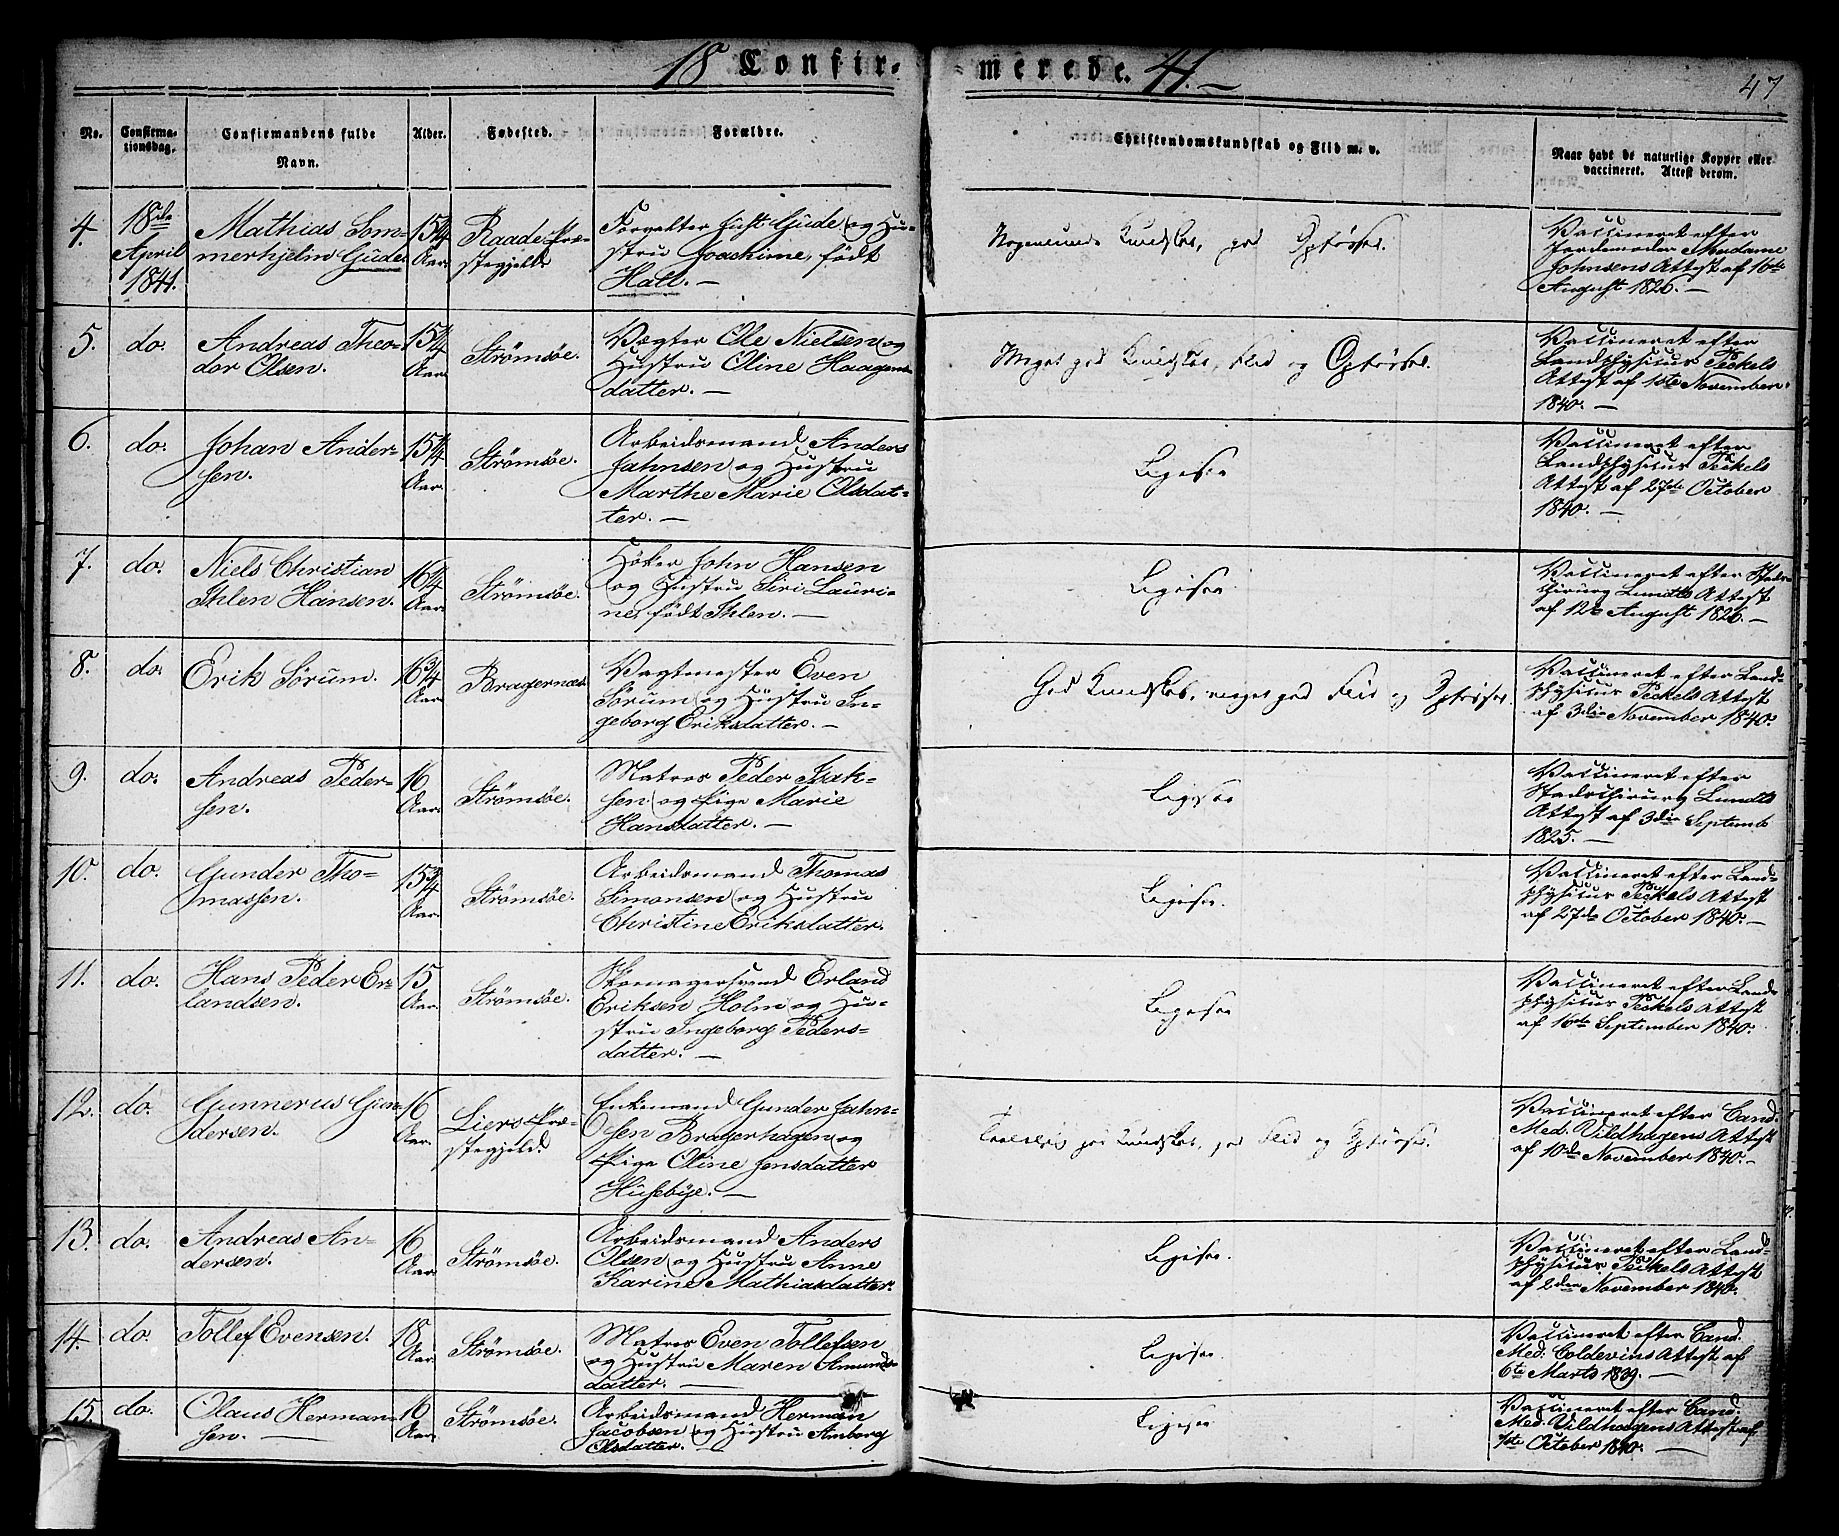 18 Confir- merede. 41. —
47
No. Confirma-tionsdag. Confirmandens fulde Navn. Alder. Fødested. Forældre. Christendomskundskab og Flid m. v. Naar havt de naturlige Kopper eller vaccineret. Attest derom.
4. 18de April 1841.
Mathias Som-
merhjelm Gude
15 1/4 Aar
Raade Præ-
stegjeld.
Forvalter Just Gude og Hu-
stru Joachime, født
Hall. —
Kundskab, god Opførsel.
Vaccineret efter
Jordemoder Madame
Johnsens Attest af 16de
August 1826. —
5. do.
Andreas Theo-
dor Olsen.
15 1/4 Aar
Strömsöe.
Vægter Ole Nielsen og
Hustru Oline Haagens
datter. —
Meget god Kundskab, Flid og Opførsel.
Vaccineret efter
Landphysicus Peckels
Attest af 1ste November
1840. —
6. do.
Johan Ander-
sen.
15 1/4 Aar
Strömsöe.
Arbeidsmand Anders
Jahnsen og Hustru
Marthe Marie Olsdat-
ter. —
Ligesaa
Vaccineret efter
Landphysicus Peckels
Attest af 27de October
1840. —
7. do.
Niels Christian
Ihlen Hansen.
16 1/4 Aar
Strömsöe.
Höker John Hansen
og Hustru Siri Lauri-
ne, født Ihlen. —
Ligesaa
Vaccineret efter Stads
chirurg Lundts Attest
af 12te August 1826. —
8. do.
Erik Sørum.
16 3/4 Aar
Bragernæs
Vagtmester Even
Sørum og Hustru In-
geborg Eriksdatter. —
God Kundskab, meget god Flid og Opførsel.
Vaccineret efter Land-
physicus Peckels Attest
af 3die November 1840.
9. do.
Andreas Peder-
sen.
16 Aar
Strömsöe.
Matros Peder Isak-
sen og Pige Marie
Hansdatter. —
Ligesaa
Vaccineret efter
Stadschirurg Lundts
Attest af 3die Septemb
1825. —
10. do.
Gunder Tho-
massen.
15 3/4 Aar
Strömsöe.
Arbeidsmand Thomas
Simonsen og Hustru
Christine Eriksdatter.
Ligesaa.
Vaccineret efter Land-
physicus Peckels Attest
af 27de October 1840. —
11. do.
Hans Peder Er-
landsen.
15 Aar
Strömsöe.
Skomagersvend Erland
Eriksen Holm og Hu-
stru Ingeborg Peders-
datter. —
Ligesaa
Vaccineret efter Land-
physicus Peckels Attest
af 16de September 1840.
12. do.
Gunnerus Gun-
dersen.
16 Aar
Liers Præ-
stegjeld.
Enkemand Gunder Jahn-
sen Bragerhagen og
Pige Oline Jensdatter
Husebye. —
god Kundskab, god Flid og Opførsel.
Vaccineret efter Cand.
Med. Vildhagens Attest
af 10de November 1840. —
13. do.
Andreas An-
dersen.
16 Aar
Strömsöe.
Arbeidsmand Anders
Olsen og Hustru Anne
Karine Mathiasdatter.
Ligesaa.
Vaccineret efter Land-
physicus Peckels Attest
af 2den November 1840.
14. do.
Tollef Evensen.
18 Aar
Strömsöe.
Matros Even Tollefsen
og Hustru Maren Amunds-
datter. —
Ligesaa.
Vaccineret efter Cand.
Med. Coldevins Attest af
6te Marts 1839. —
15. do.
Olaus Herman-
sen. —
16 Aar
Strömsöe.
Arbeidsmand Herman
Jacobsen og Hustru Amborg
Olsdatter. —
Ligesaa
Vaccineret efter Cand.
Med. Vildhagens Attest af
October 1840. —